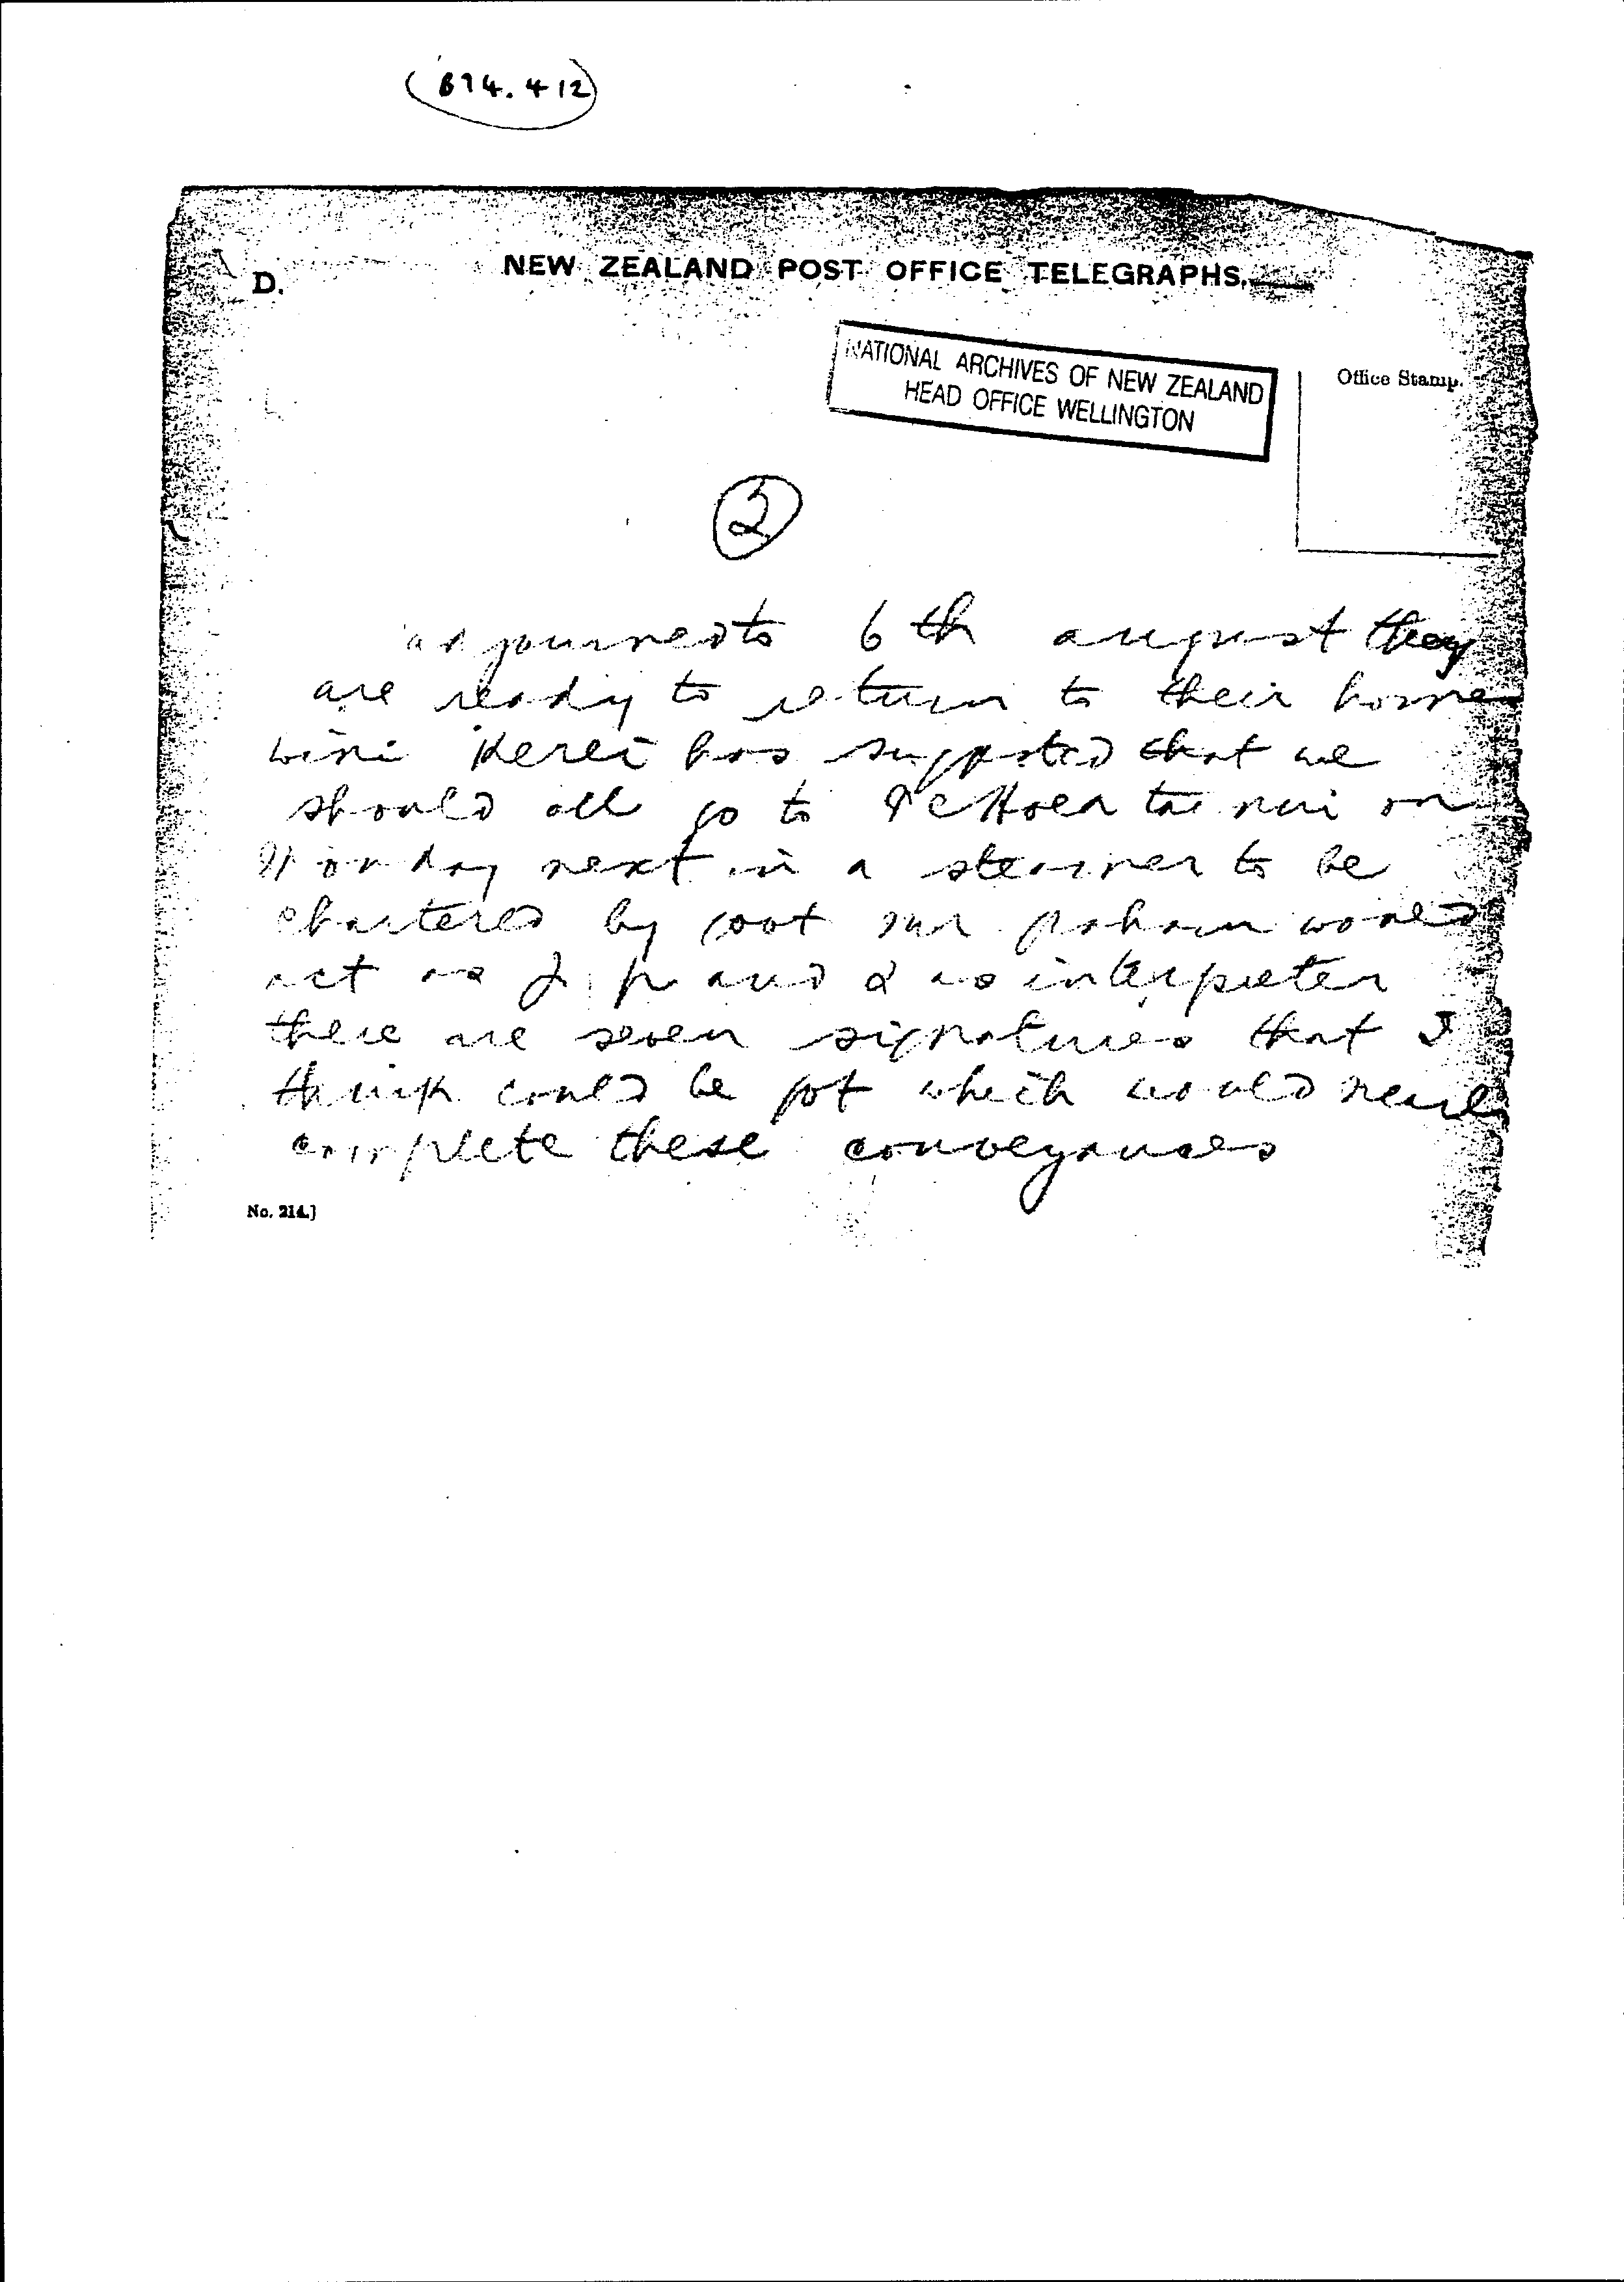 (B74.412)
D.
NEW ZEALAND POST OFFICE TELEGRAPHS.
NATIONAL ARCHIVES OF NEW ZEALAND
HEAD OFFICE WELLINGTON
Office Stamp.
2
adjourned to 6th august they
are ready to return to their homes
wiri Kerei has suggested that we
should all go to Te Hoea tai nui on
Monday next in a steamer to be
chartered by govt our would
act as J. p and I as interpreter
there are seven signatures that I
think could be got which would nearly
complete these conveyances
No. 214.]